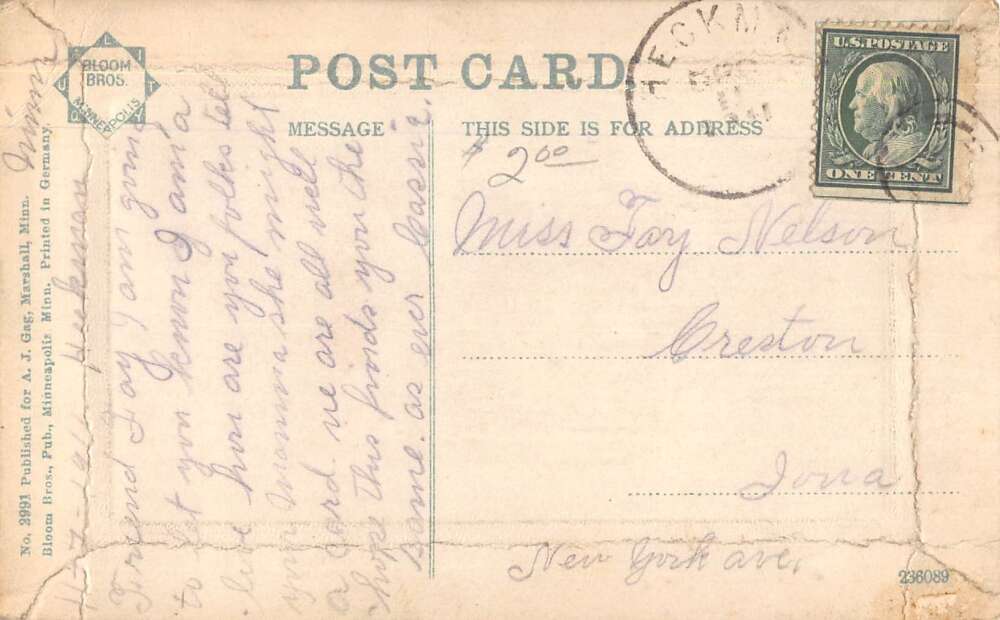 BLOOM
BROS.
MINNEAPOLIS
POST CARD
MESSAGE
THIS SIDE IS FOR ADDRESS
2 00
HECKM
U.S.POSTAGE
ONE CENT
Miss Fay Nelson
Creston
Iowa
New York ave.
236089
No. 2991 Published for A. J. Gag, Marshall, Minn.
Bloom Bros., Pub., Minneapolis Minn. Printed in Germany.
Minn
Friend Fay I am going
to let you know I am a
live how are you folks tell
your mamma she might
a card we are all well
hope this finds you the
same. as ever Cassie.